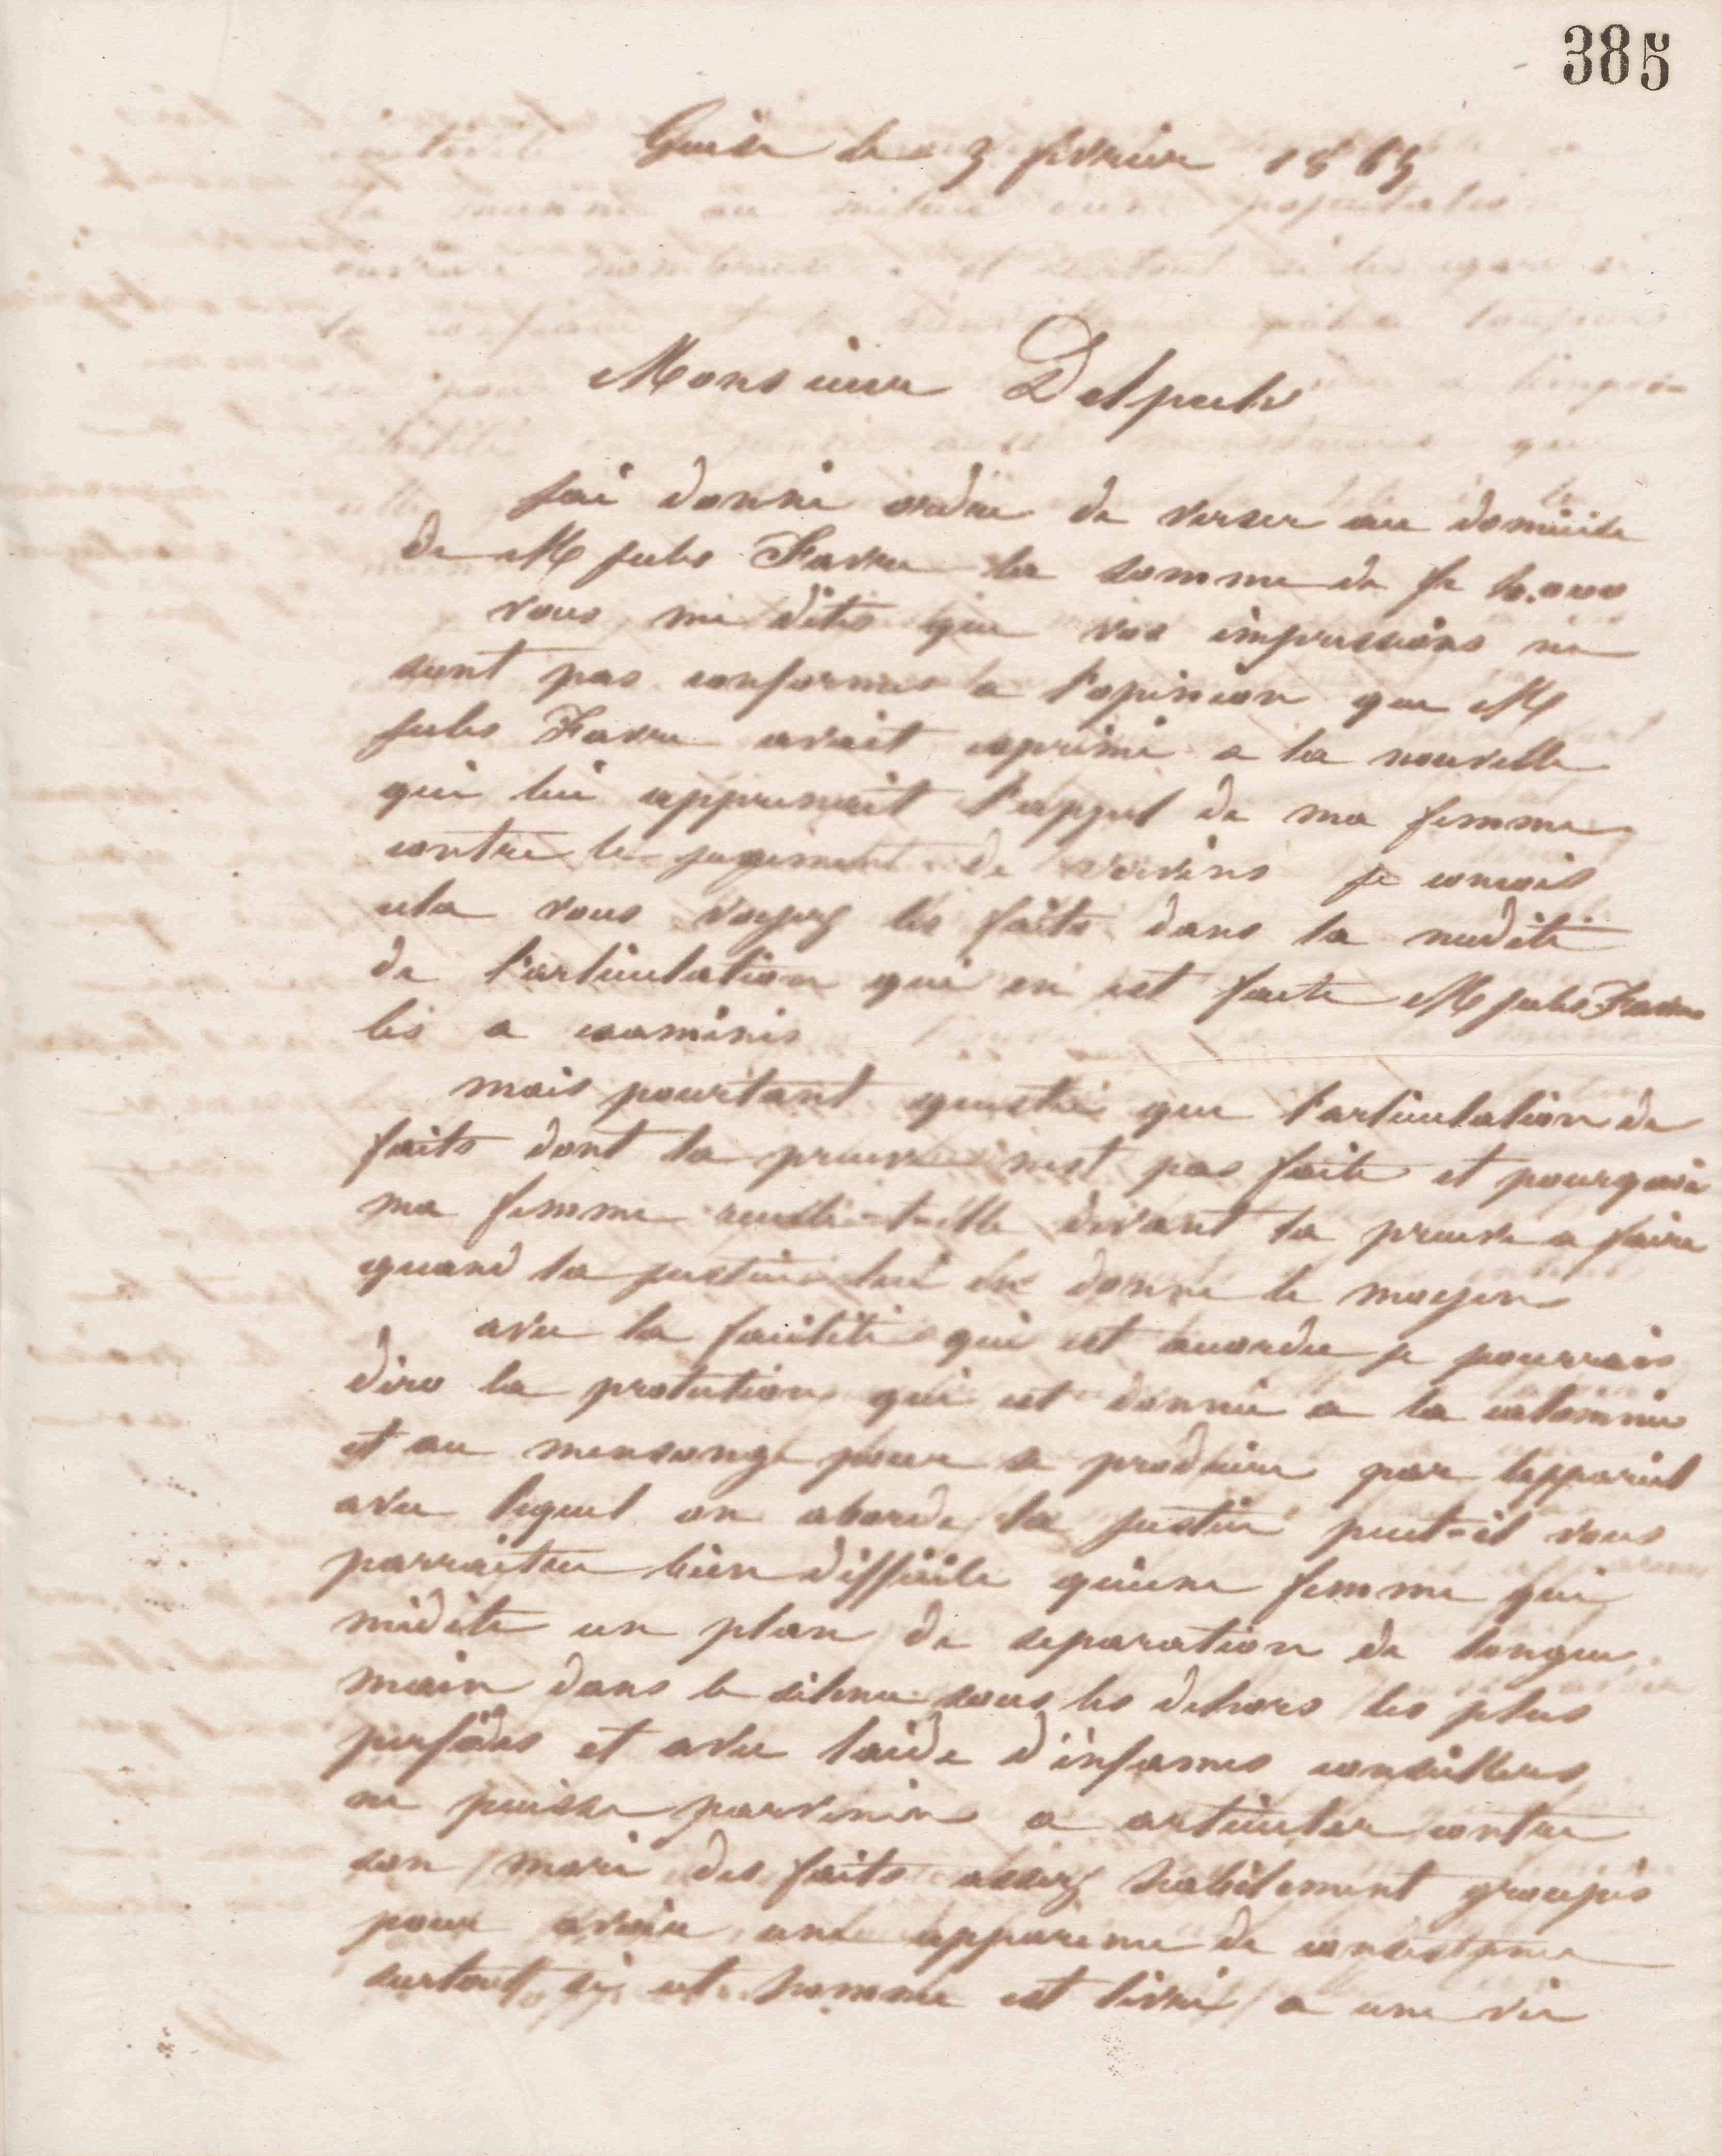 385
Guise le 3 février 1865
Monsieur Delpech
j'ai donné ordre de verser au domicile
de M Jules Favre la somme de fr
vous me dites que vos impressions ne
sont pas conformes a l'opinion que M
Jules Favre avait exprimé a la nouvelle
qui lui apprenait l'appel de ma femme
contre le jugement de vervins je concois
cela vous voyez les faits dans la nudité
de l'articulation qui en est faite M Jules Favre
les a examinés
mais pourtant quest que l'articulation de
faits dont la preuve nest pas faite et pourquoi
ma femme recule-t-elle devant la preuve a faire
quand la justice lui en donne le moyen
avec la facilité qui est accordée je pourrais
dire la protection qui est donnée a la calomnie
et au mensonge pour se produire par l'appareil
avec lequel on aborde la justice peut-il vous
parraitre bien difficile qu'une femme qui
médite un plan de separation de longue
main dans le silence sous les dehors les plus
perfides et avec laide d'infames conseillers
ne puisse parvenir a articuler contre
son mari des faits assez habilement groupés
pour avoir une apparence de consistance
surtout si cet homme est livré a une vie